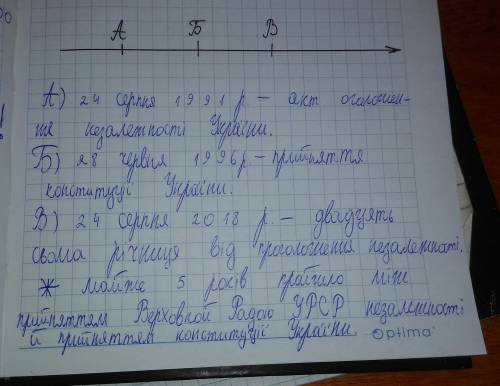 А Б В
А) 24 серпня 1991 р – акт оголошен-
ня незалежності України.
Б) 28 червня 1996р – прийняття
конституції України.
В) 24 серпня 2018 р. – двадцять
сьома річниця від проголошення незалежності.
* майже 5 років пройшло між
прийняттям Верховної Радою УРСР незалежності
й прийняттям конституції України.
Optima